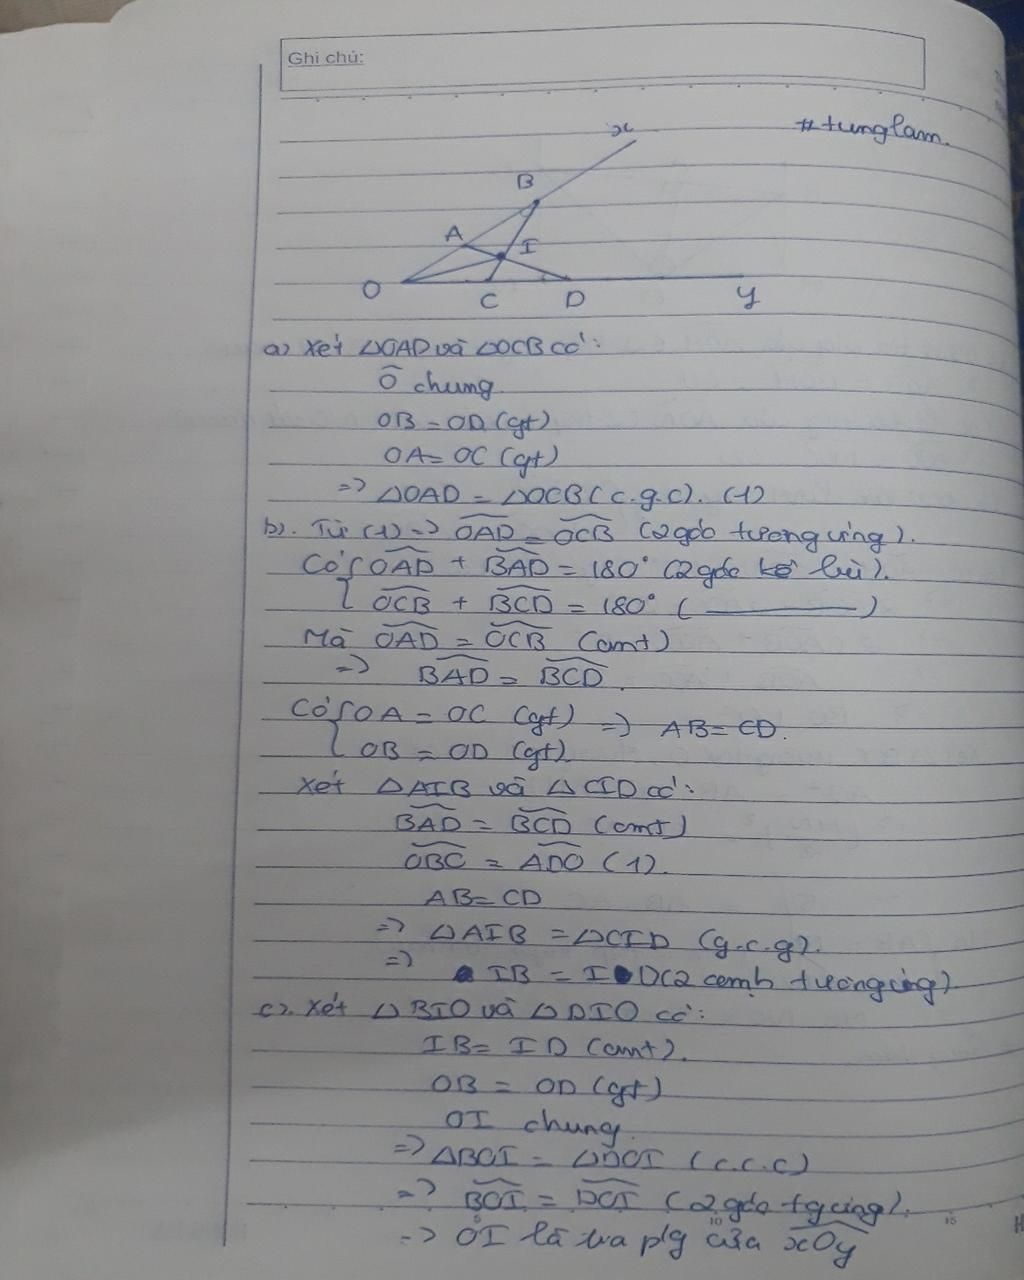 Ghi chú:
#tunglam.
x
B
A
I
O
C
D
y
a) Xét △OAD và △OCB có:
Ô chung
OB = OD (gt)
OA = OC (gt)
=> △OAD = △OCB (c.g.c). (1)
b). Từ (1) => OAD = OCB (2 góc tương ứng).
Có { OAD + BAD = 180° (2 góc kề bù).
OCB + BCD = 180° ( ———— )
Mà OAD = OCB (cmt)
=> BAD = BCD.
Có { OA = OC (gt) => AB = CD.
OB = OD (gt)
Xét △AIB và △CID có:
BAD = BCD (cmt)
OBC = ADO (1).
AB = CD
=> △AIB = △CID (g.c.g).
=> IB = ID (2 cạnh tương ứng)
c). Xét △BIO và △DIO có:
IB = ID (cmt).
OB = OD (gt)
OI chung.
=> △BOI = △DOI (c.c.c)
=> BOI = DOI (2 góc tg ứng).
10 15
=> OI là tia p/g của xOy